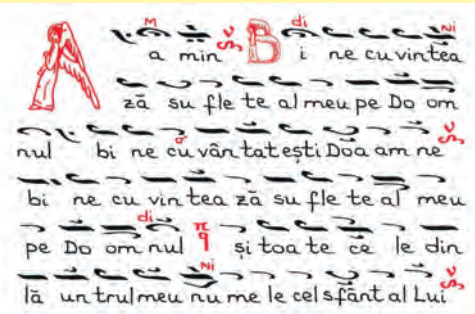 M di Ni
A a min B i ne cu vin tea
ză su fle te al meu pe Do om
nul bi ne cu vân tat ești Doa am ne
bi ne cu vin tea ză su fle te al meu
di
pe Do om nul și toa te ce le din
Ni
lă un trul meu nu me le cel sfânt al Lui